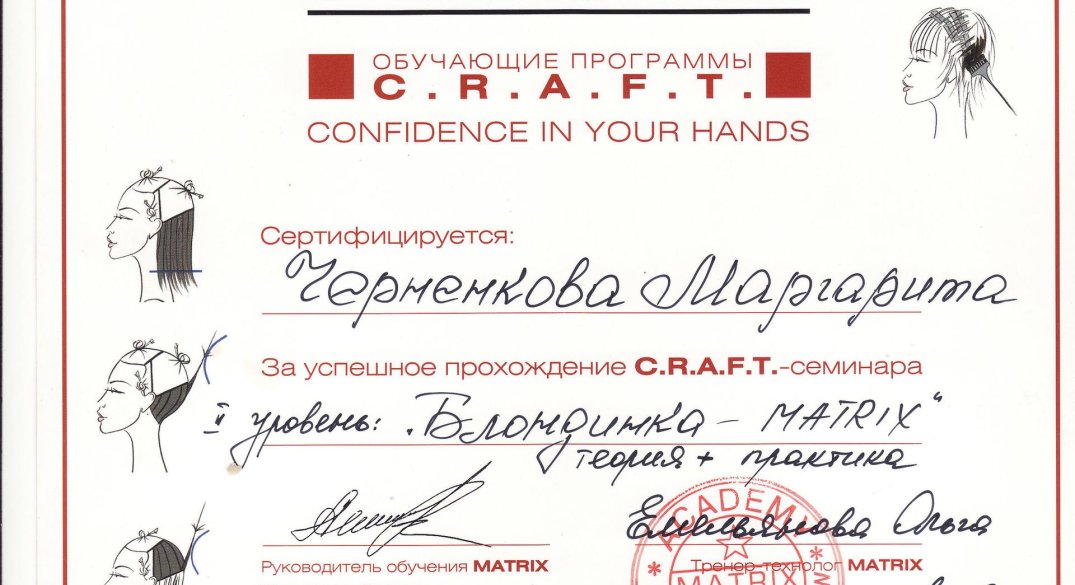 ОБУЧАЮЩИЕ ПРОГРАММЫ
C.R.A.F.T.
CONFIDENCE IN YOUR HANDS
Сертифицируется:
Черненкова Маргарита
За успешное прохождение C.R.A.F.T.-семинара
II уровень: „Блондинка – MATRIX"
теория + практика
Емельянова Ольга
Руководитель обучения MATRIX
Тренер-технолог MATRIX
ACADEMY
MATRIX